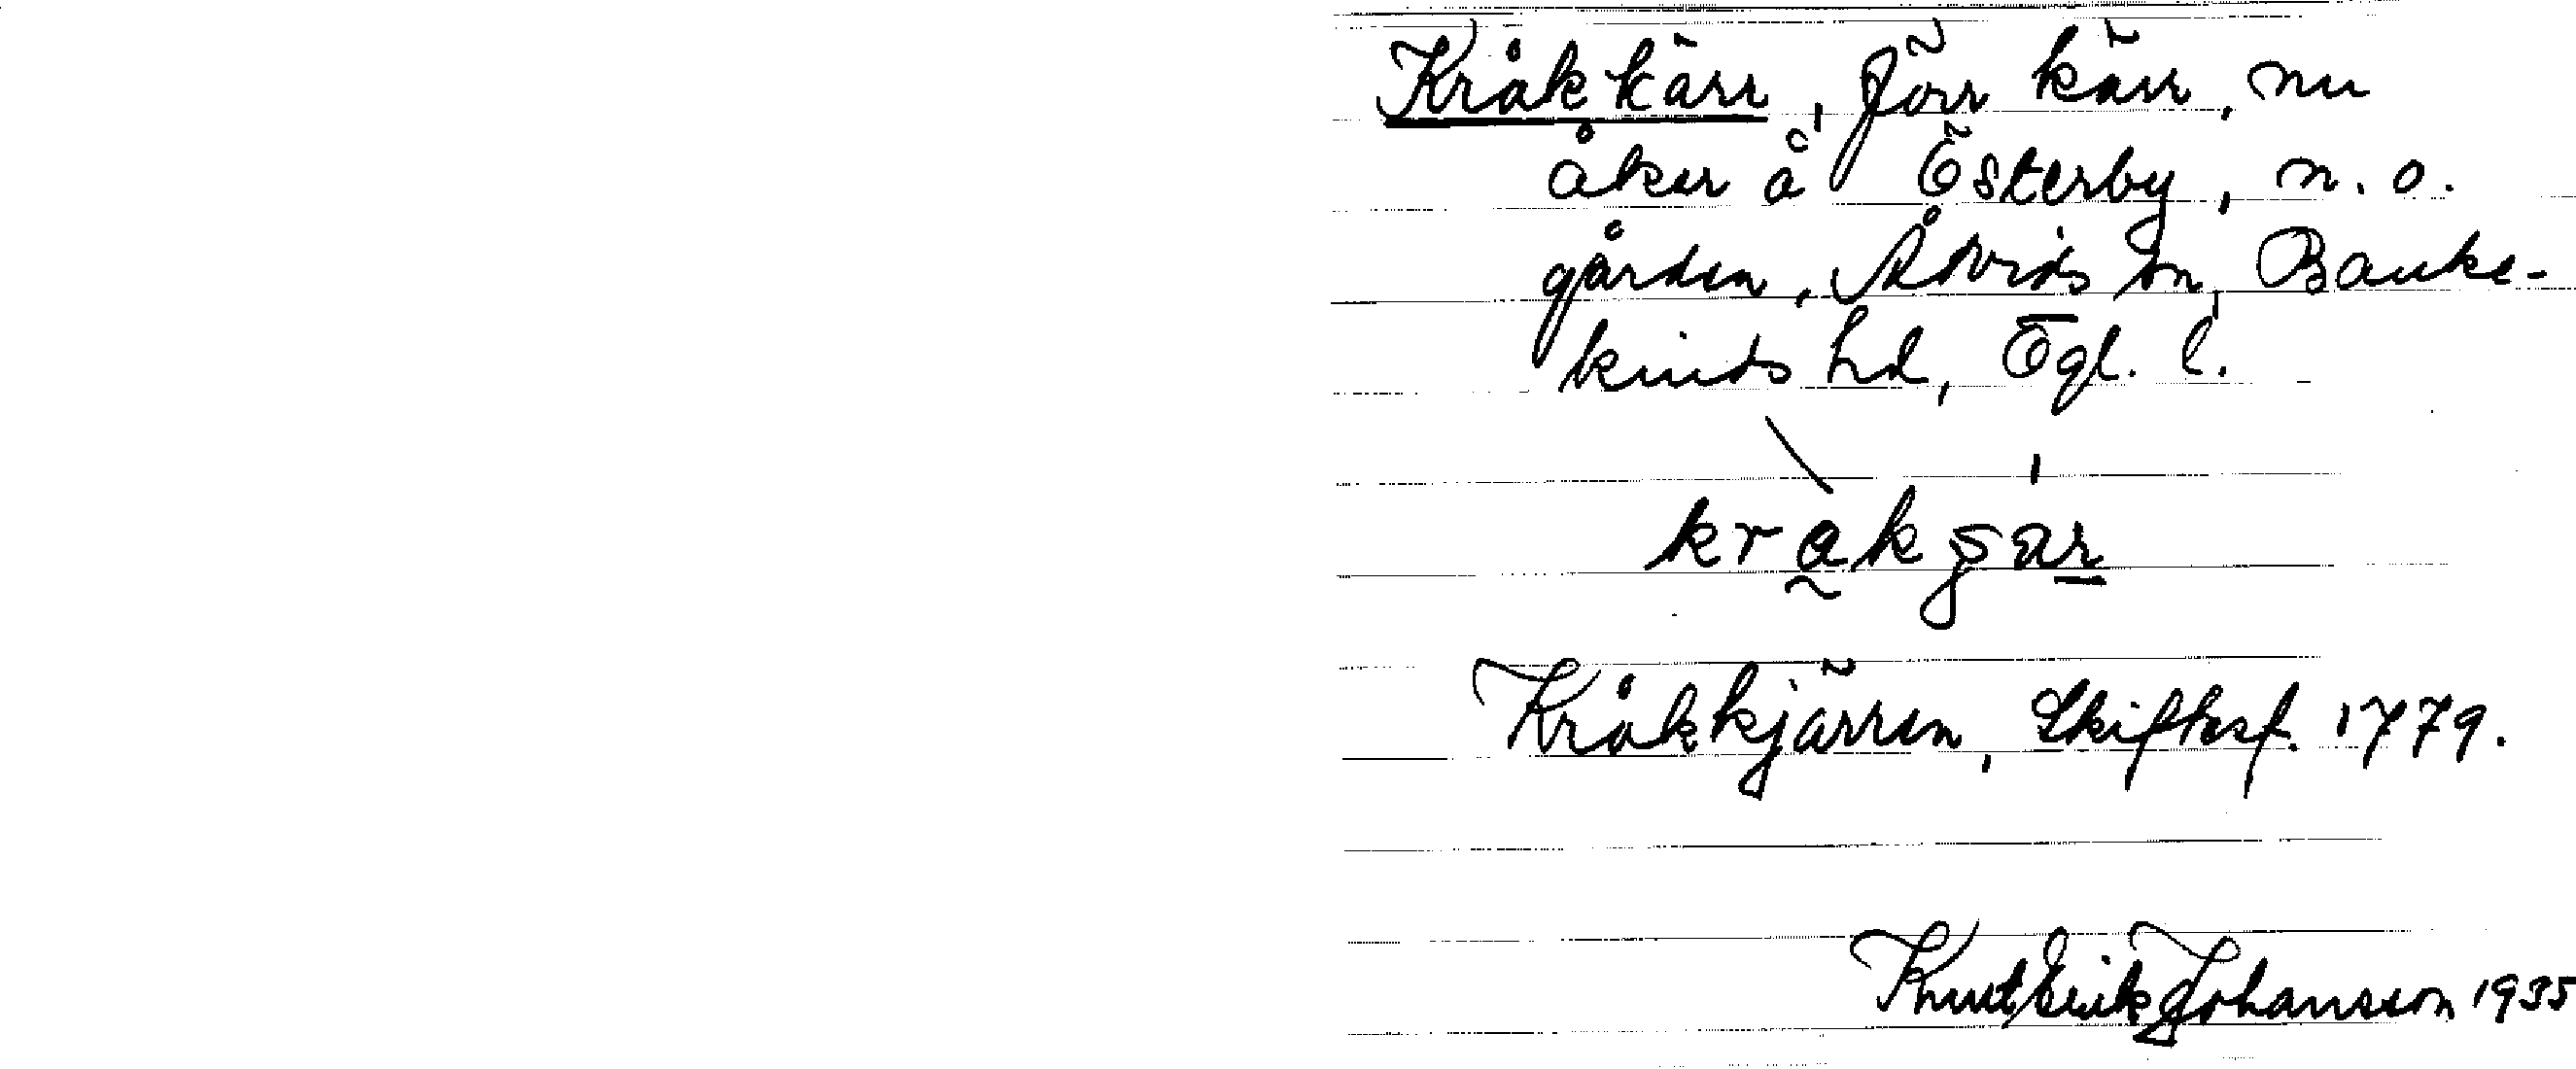 Kråkkärr, förr kärr, nu
åker å Österby, n. o.
gården, Åtvids sn, Banke-
kinds hd, Ögl. l.
Kråkkjärren, Skiftesf. 1779.
Knut Erik Johansson 1935